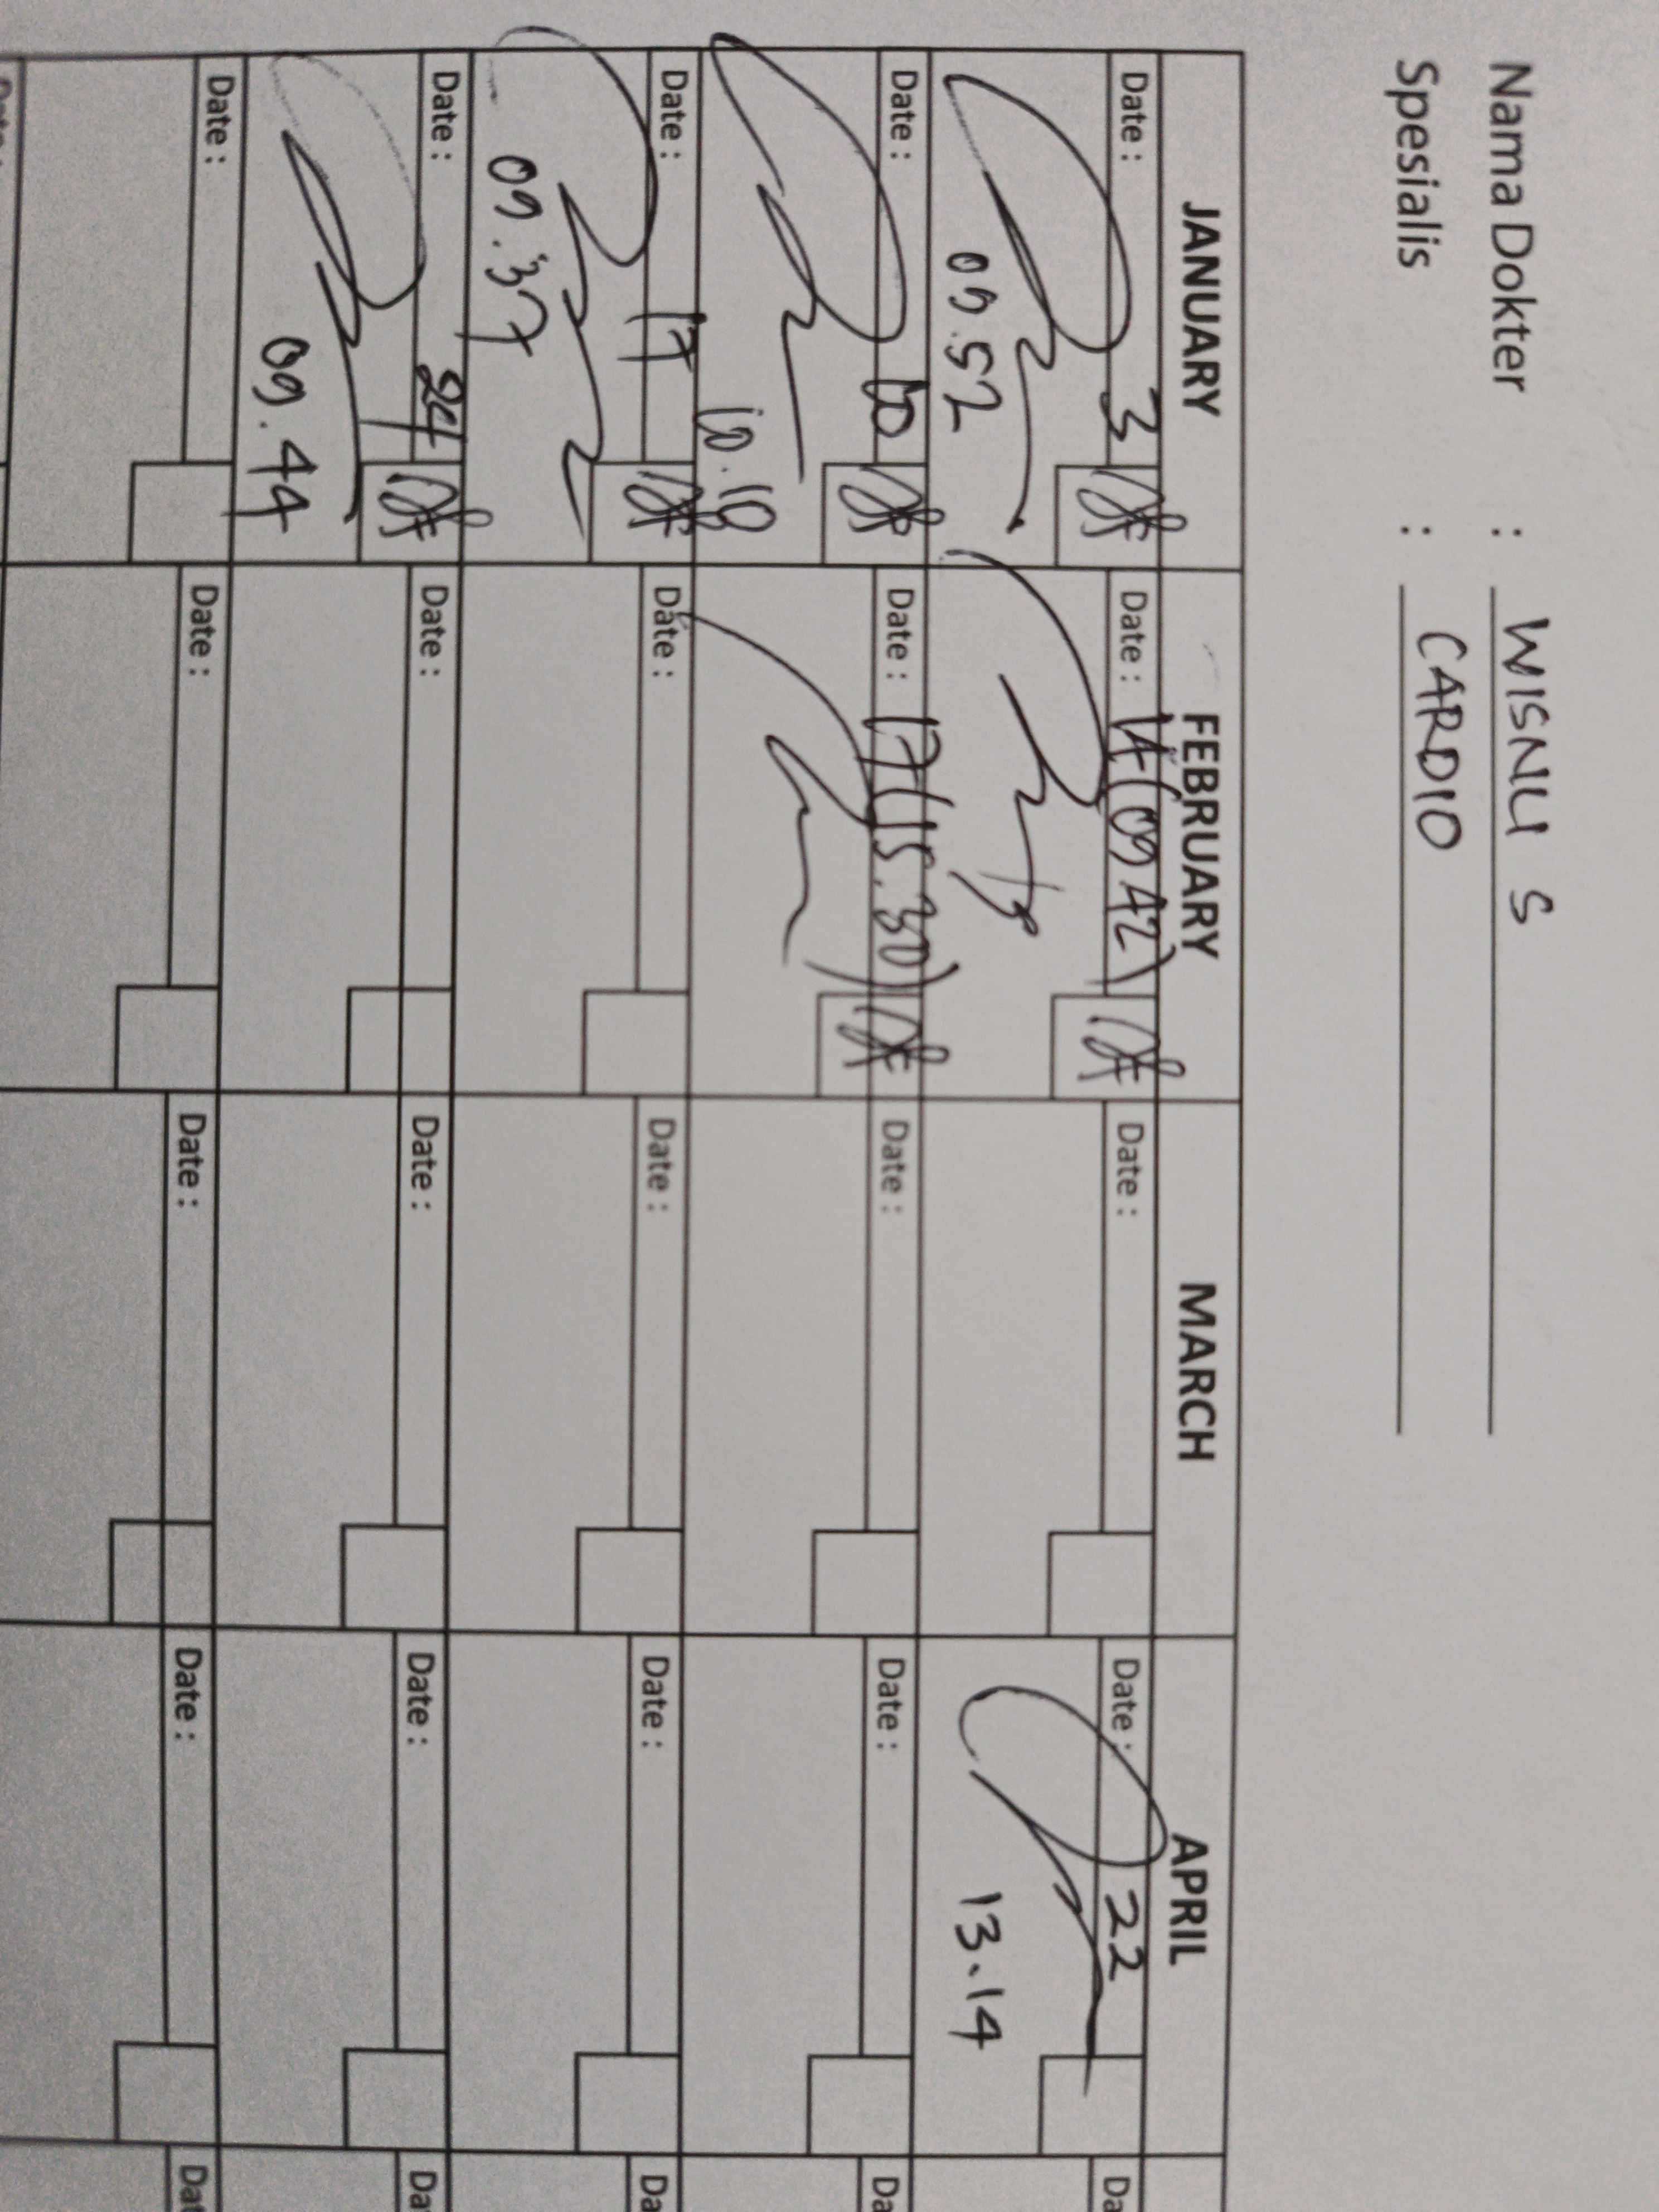 Nama Dokter : WISNU S
Spesialis : CARDIO
JANUARY FEBRUARY MARCH APRIL
Date : 3 Date : 14 (09.42) Date : Date : 22 Da
09.52 13.14
Date : 10 Date : 17 (15.30) Date : Date : Da
10.10
Date : 17 Date : Date : Date : Da
09.37
Date : 24 Date : Date : Date : Da
09.44
Date : Date : Date : Date : Dat
Date :